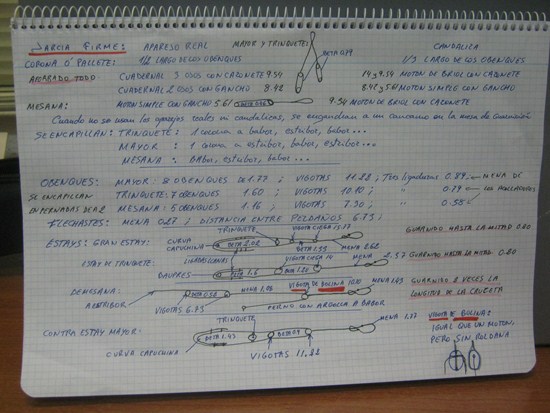 JARCIA FIRME: APAREJO REAL MAYOR Y TRINQUETE: CANDALICA
CORONA Ó PALLETE: 1/2 LARGO DE LOS OBENQUES BETA 0.79 1/3 LARGO DE LOS OBENQUES
AFORRADO TODO CUADERNAL 3 OJOS CON CABUNETE 9.54 14 y 9.54 MOTON DE BRIOL CON CABUNETE
CUADERNAL 2 OJOS CON GANCHO 8.42 8.42 y 5.61 MOTON SIMPLE CON GANCHO
MESANA: MOTON SIMPLE CON GANCHO 5.61 9.54 MOTON DE BRIOL CON CABUNETE
Cuando no se usan los aparejos reales ni candalicas, se enganchan a un cancamo en la mesa de guarnición
SE ENCAPILLAN: TRINQUETE: 1 corona a babor, estribor, babor...
MAYOR: 1 corona a estribor, babor, estribor...
MESANA: Babor, estribor, babor...
OBENQUES: MAYOR: 8 OBENQUES DE 1.77; VIGOTAS 11.22; Tres ligaduras 0.89, MENA DE
SE ENCAPILLAN TRINQUETE: 7 OBENQUES 1.60; VIGOTAS 10.10; " 0.79 LOS ACOLLADORES
EMPERNADAS DE A 2 MESANA: 5 OBENQUES 1.16; VIGOTAS 7.30; " 0.58
FLECHASTES: MENA 0.27; DISTANCIA ENTRE PELDAÑOS 6.73;
ESTAYS: GRAN ESTAY: CURVA CAPUCHINA TRINQUETE BETA 2.02 VIGOTA CIEGA BETA 1.33 MENA 2.62 GUARNIDO HASTA LA MITAD
ESTAY DE TRINQUETE: BAUPRES BETA 1.6 VIGOTA CIEGA 14 BETA 1.20 MENA 2.37 GUARNIDO HASTA LA MITAD 0.80
DE MESANA: ARBITRBOR BETA 0.58 MENA 1.16 VIGOTA DE BOLINA GUARNIDO 2 VECES LA
VIGOTAS 6.73 PERNO CON ARGOLLA A BABOR LONGITUD DE LA CRUCETA
CONTRA ESTAY MAYOR: TRINQUETE BETA 1.43 MENA 1.77 VIGOTA DE BOLINA:
CURVA CAPUCHINA VIGOTAS 11.22 IGUAL QUE UN MOTON
PERO SIN ROLDANA